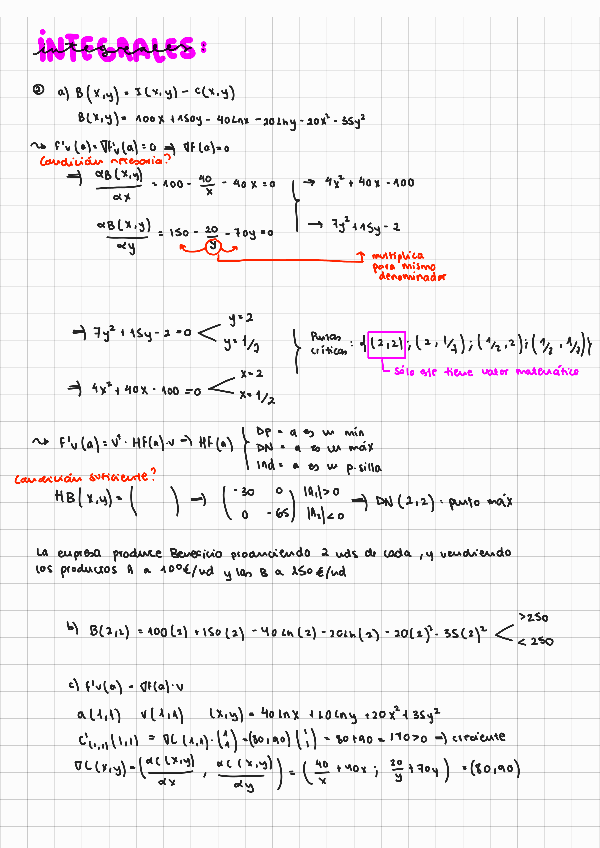 INTEGRALES:
integrales
② a) B(x,y) = I(x,y) - C(x,y)
B(x,y) = 100x + 150y - 40lnx - 20lny - 20x² - 35y²
⤳ F'v(a) = ∇F'v(a) = 0 ⇒ ∇F(a) = 0
Condición necesaria?
⇒ αB(x,y)/αx = 100 - 40/x - 40x = 0 → 4x² + 40x - 100
αB(x,y)/αy = 150 - 20/y - 70y = 0 → 7y² + 15y - 2
multiplica
para mismo
denominador
⇒ 7y² + 15y - 2 = 0 < y = 2 y = 1/7
⇒ 4x² + 40x - 100 = 0 < x = 2 x = 1/2
Puntos críticos : {(2,2) ; (2, 1/7) ; (1/2, 2) ; (1/2, 1/7)}
sólo este tiene valor matemático
⤳ F'v(a) = vᵗ · HF(a) · v ⇒ HF(a)
DP = a es un mín
DN = a es un máx
Ind = a es un p. silla
Condición suficiente?
HB(x,y) = ( ) → (-30 0 0 -65) |A₁| > 0 |A₂| < 0 ⇒ DN (2,2) : punto máx
La empresa produce Beneficio produciendo 2 uds de cada, y vendiendo
los productos A a 100€/ud y los B a 150€/ud
b) B(2,2) = 100(2) + 150(2) - 40ln(2) - 20ln(2) - 20(2)² - 35(2)² < >250 < 250
c) F'v(a) = ∇F(a) · v
a(1,1) v(1,1) (x,y) = 40lnx + 20lny + 20x² + 35y²
C'(1,1)(1,1) = ∇C(1,1) · (1 1) = (80,90) (1 1) = 80 + 90 = 170 > 0 ⇒ creciente
∇C(x,y) = (αC(x,y)/αx , αC(x,y)/αy) = (40/x + 40x ; 20/y + 70y) = (80,90)